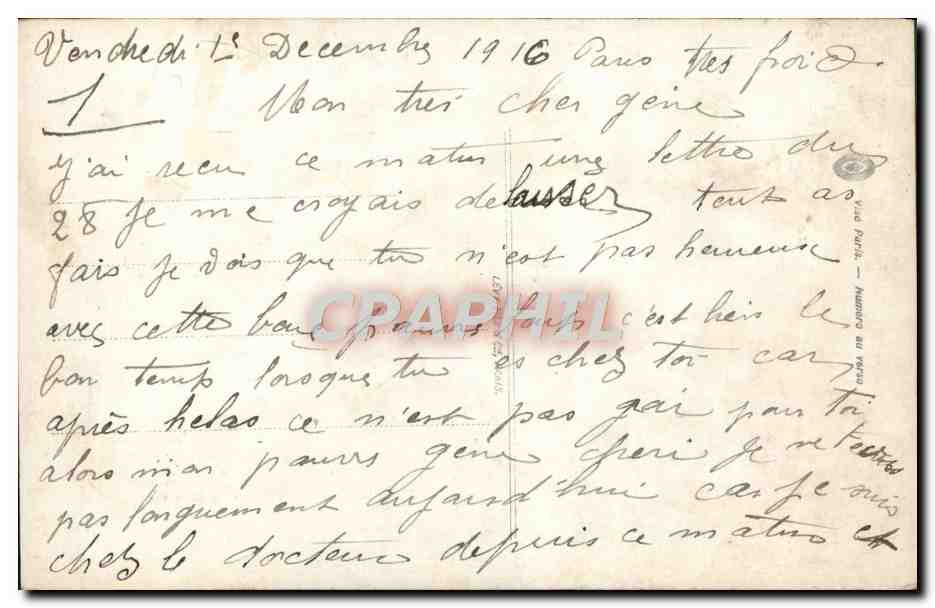 Vendredi 1er Decembre 1916 Paris tres froid.
1 Mon tres cher gene
j'ai recu ce matin une lettre du
28 je me croyais delaisser tout as
fais je vois que tu n'est pas heureux
avec cette boue pauvre loup c'est bien le
bon temps lorsque tu es chez toi car
après helas ce n'est pas gai pour toi
alors mon pauvre gene cheri je ne t'ecris
pas longuement aujourd'hui car je suis
chez le docteur depuis ce matin et
CPAPHIL
Visé Paris. — Numero au verso